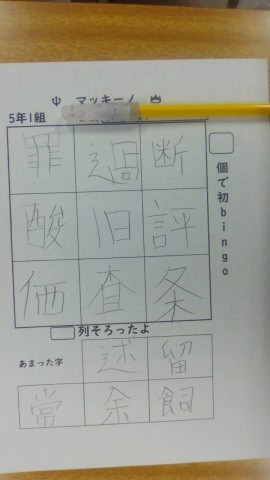 マッキーノ
5年1組
罪 過 断
酸 旧 評
価 査 条
個で初bingo
列そろったよ
あまった字
述 留
常 余 飼